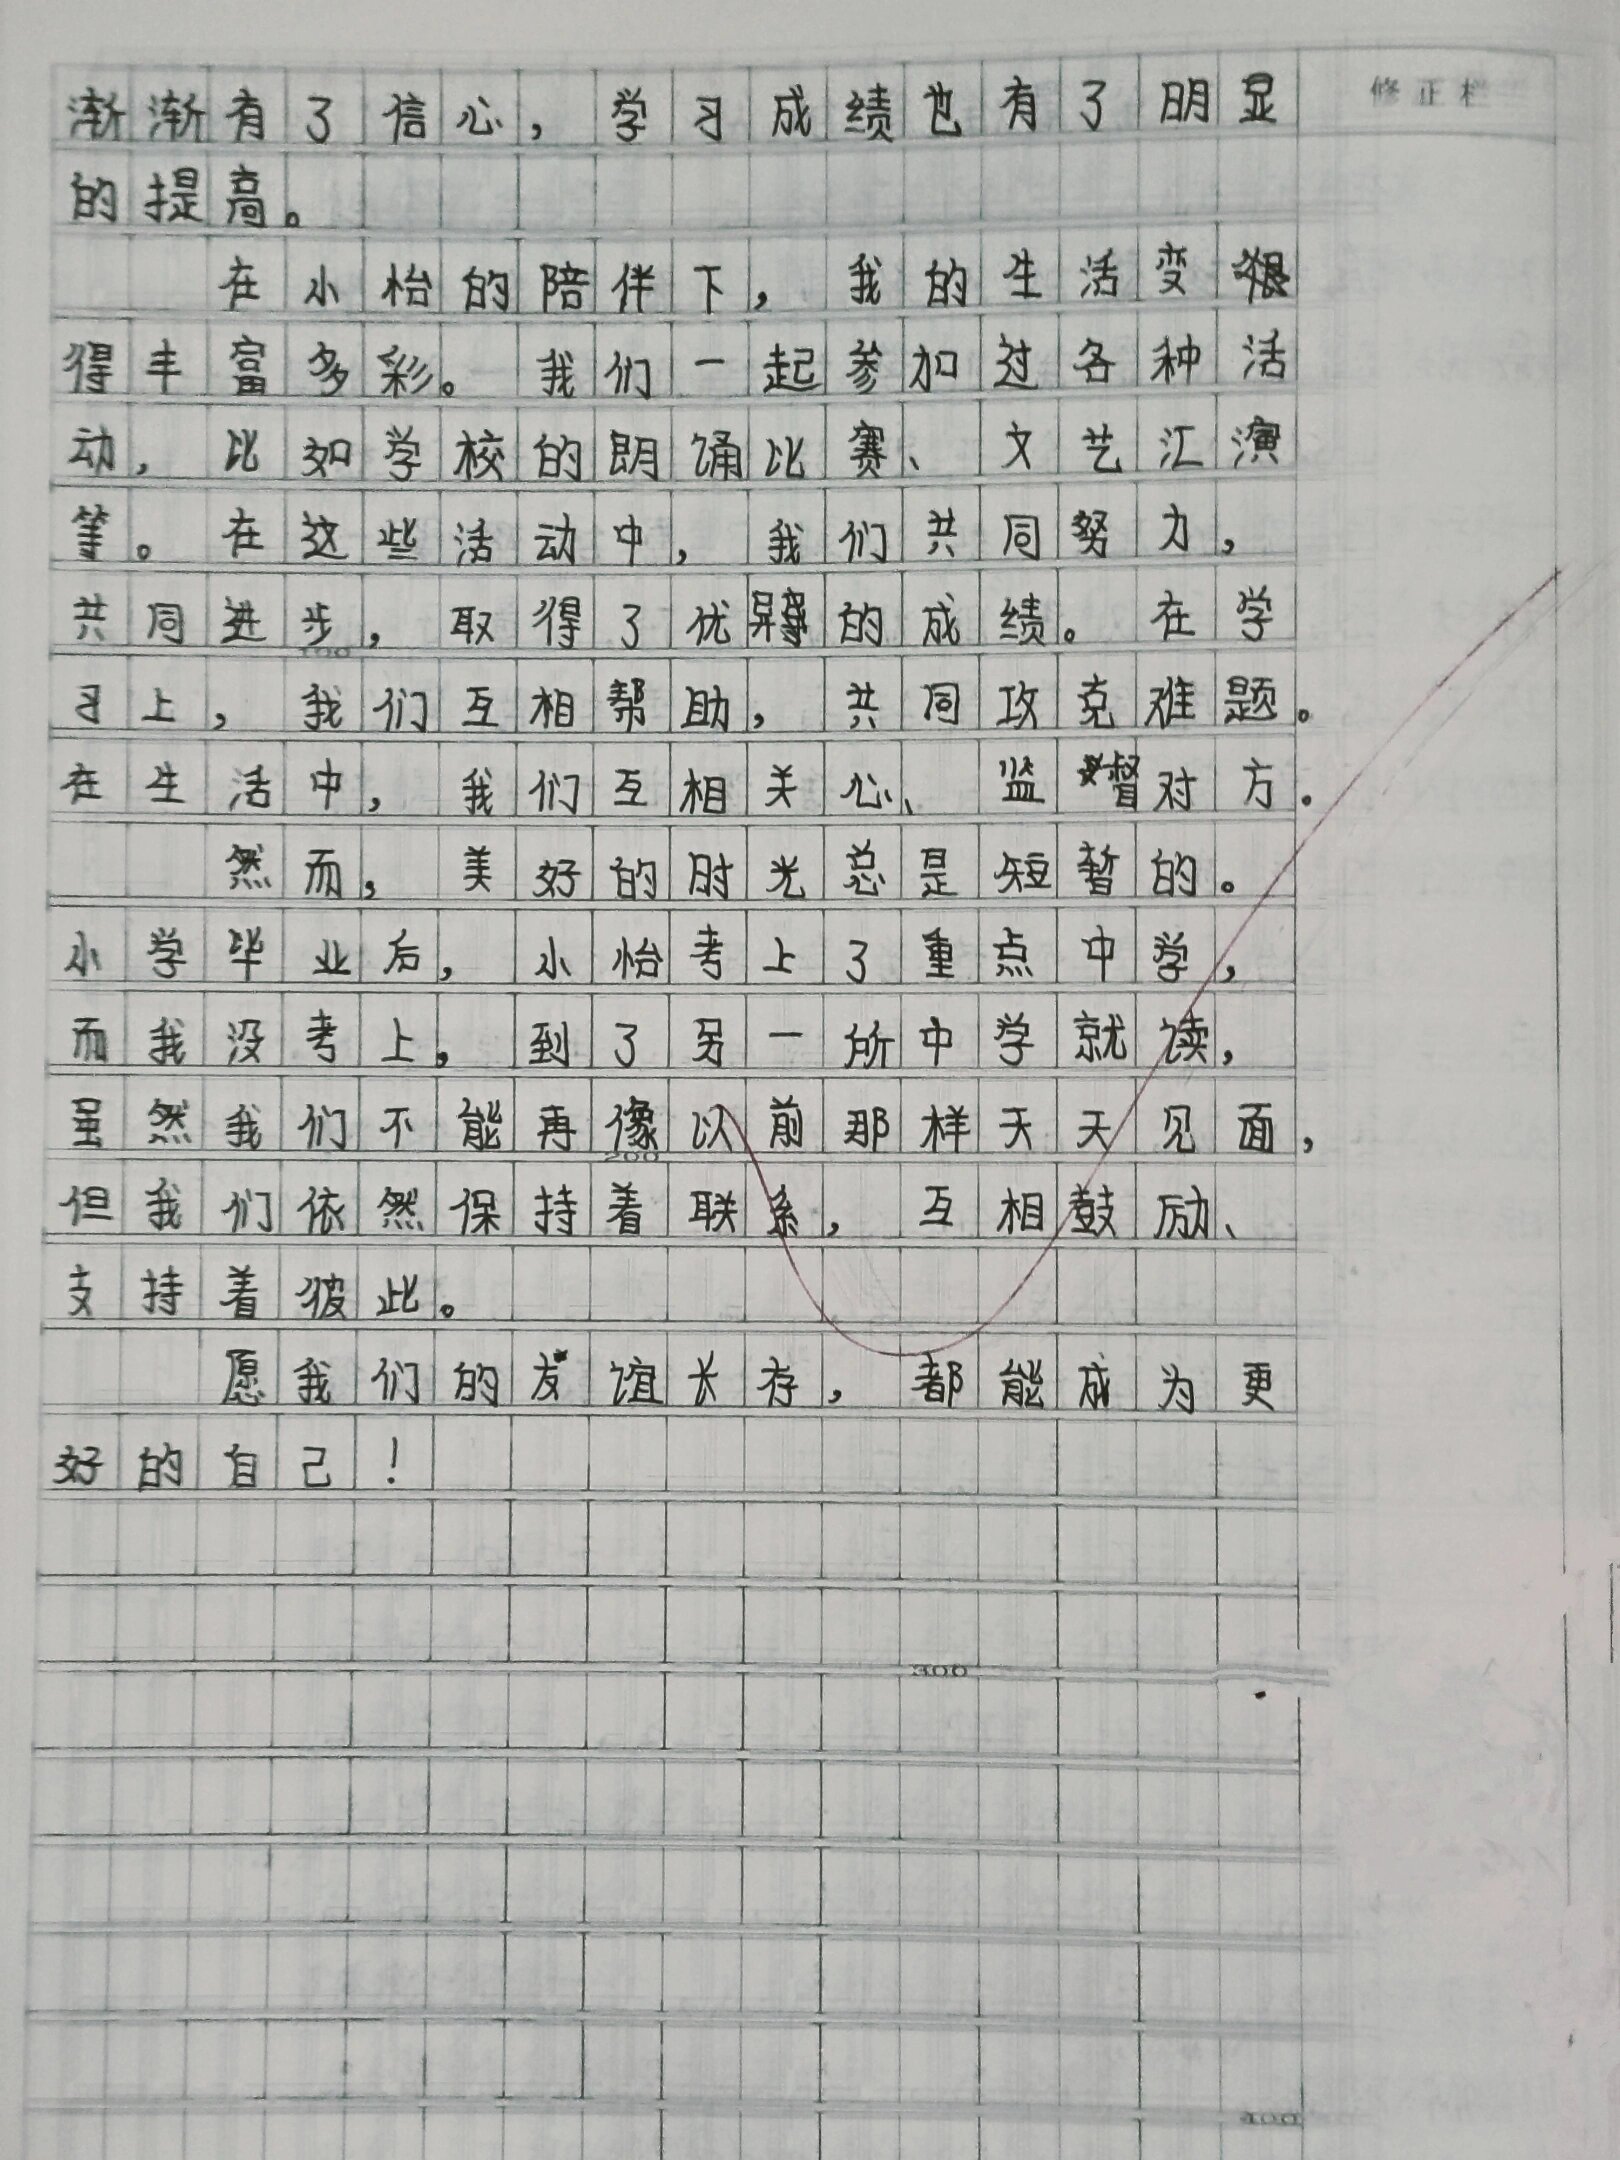 渐渐有了信心，学习成绩也有了明显
修正栏
的提高。
在小怡的陪伴下，我的生活变
得丰富多彩。我们一起参加过各种活
动，比如学校的朗诵比赛、文艺汇演
等。在这些活动中，我们共同努力，
共同进步，取得了优异的成绩。在学
100
习上，我们互相帮助，共同攻克难题。
在生活中，我们互相关心、监督对方.
然而，美好的时光总是短暂的。
小学毕业后，小怡考上了重点中学，
而我没考上，到了另一所中学就读，
虽然我们不能再像以前那样天天见面，
200
但我们依然保持着联系，互相鼓励、
支持着彼此。
愿我们的友谊长存，都能成为更
好的自己！
300
400